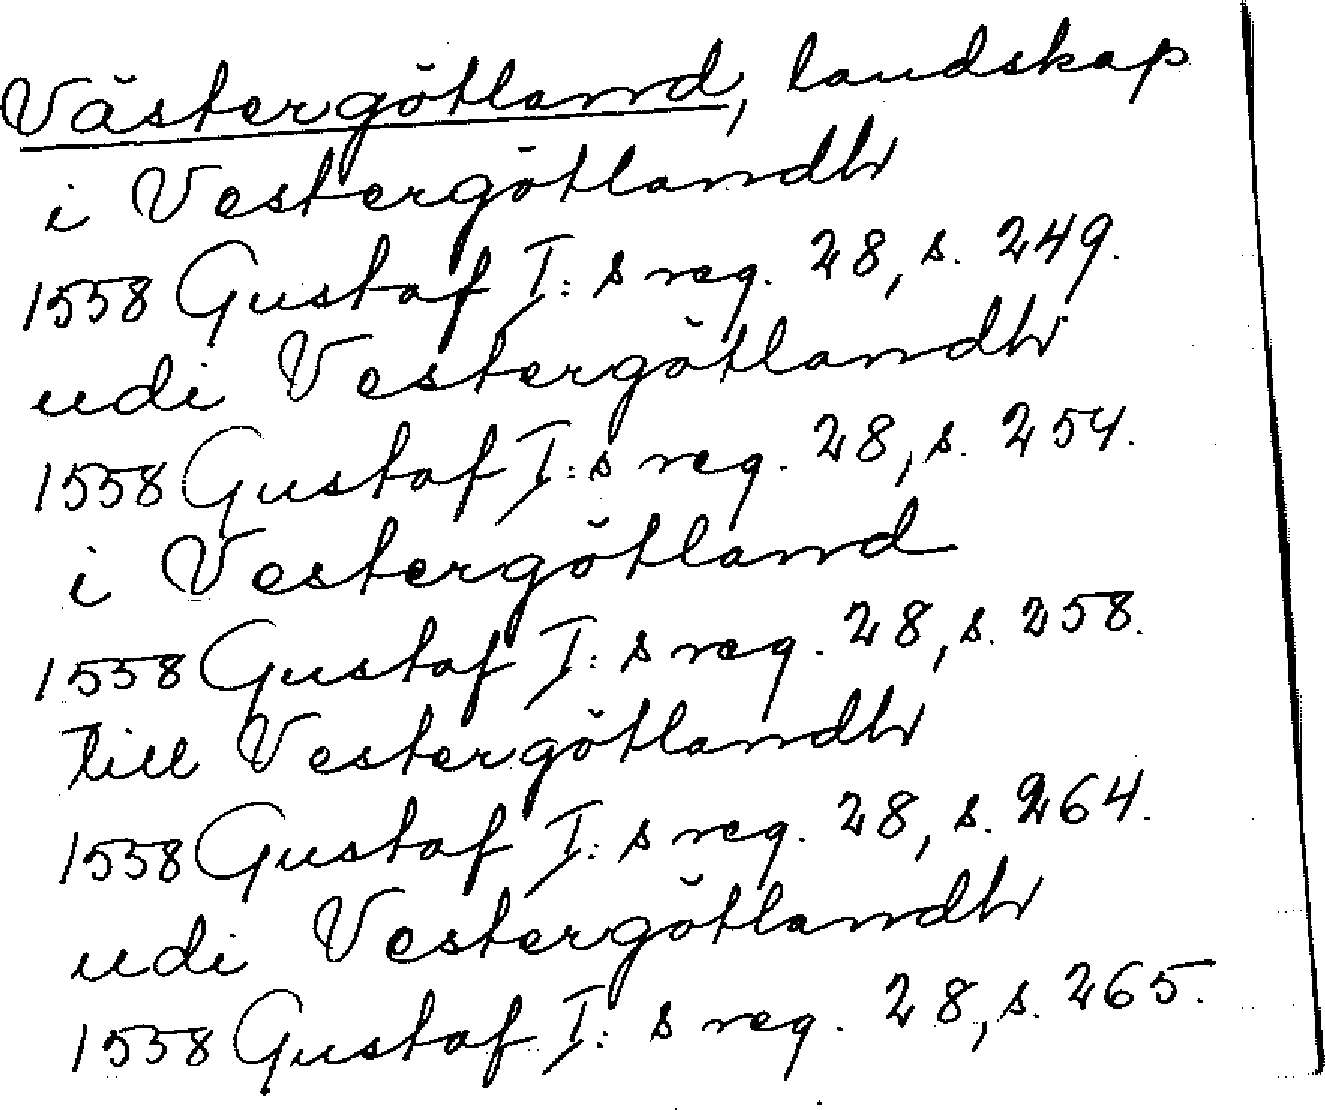 Västergötland, landskap
i Vestergötlandh
1558 Gustaf I:s reg. 28, s. 249.
udi Vestergötlandh
1558 Gustaf I:s reg. 28, s. 254.
i Vestergötland
1558 Gustaf I:s reg. 28, s. 258.
till Vestergötlandh
1558 Gustaf I:s reg. 28, s. 264.
udi Vestergötlandh
1558 Gustaf I:s reg. 28, s. 265.